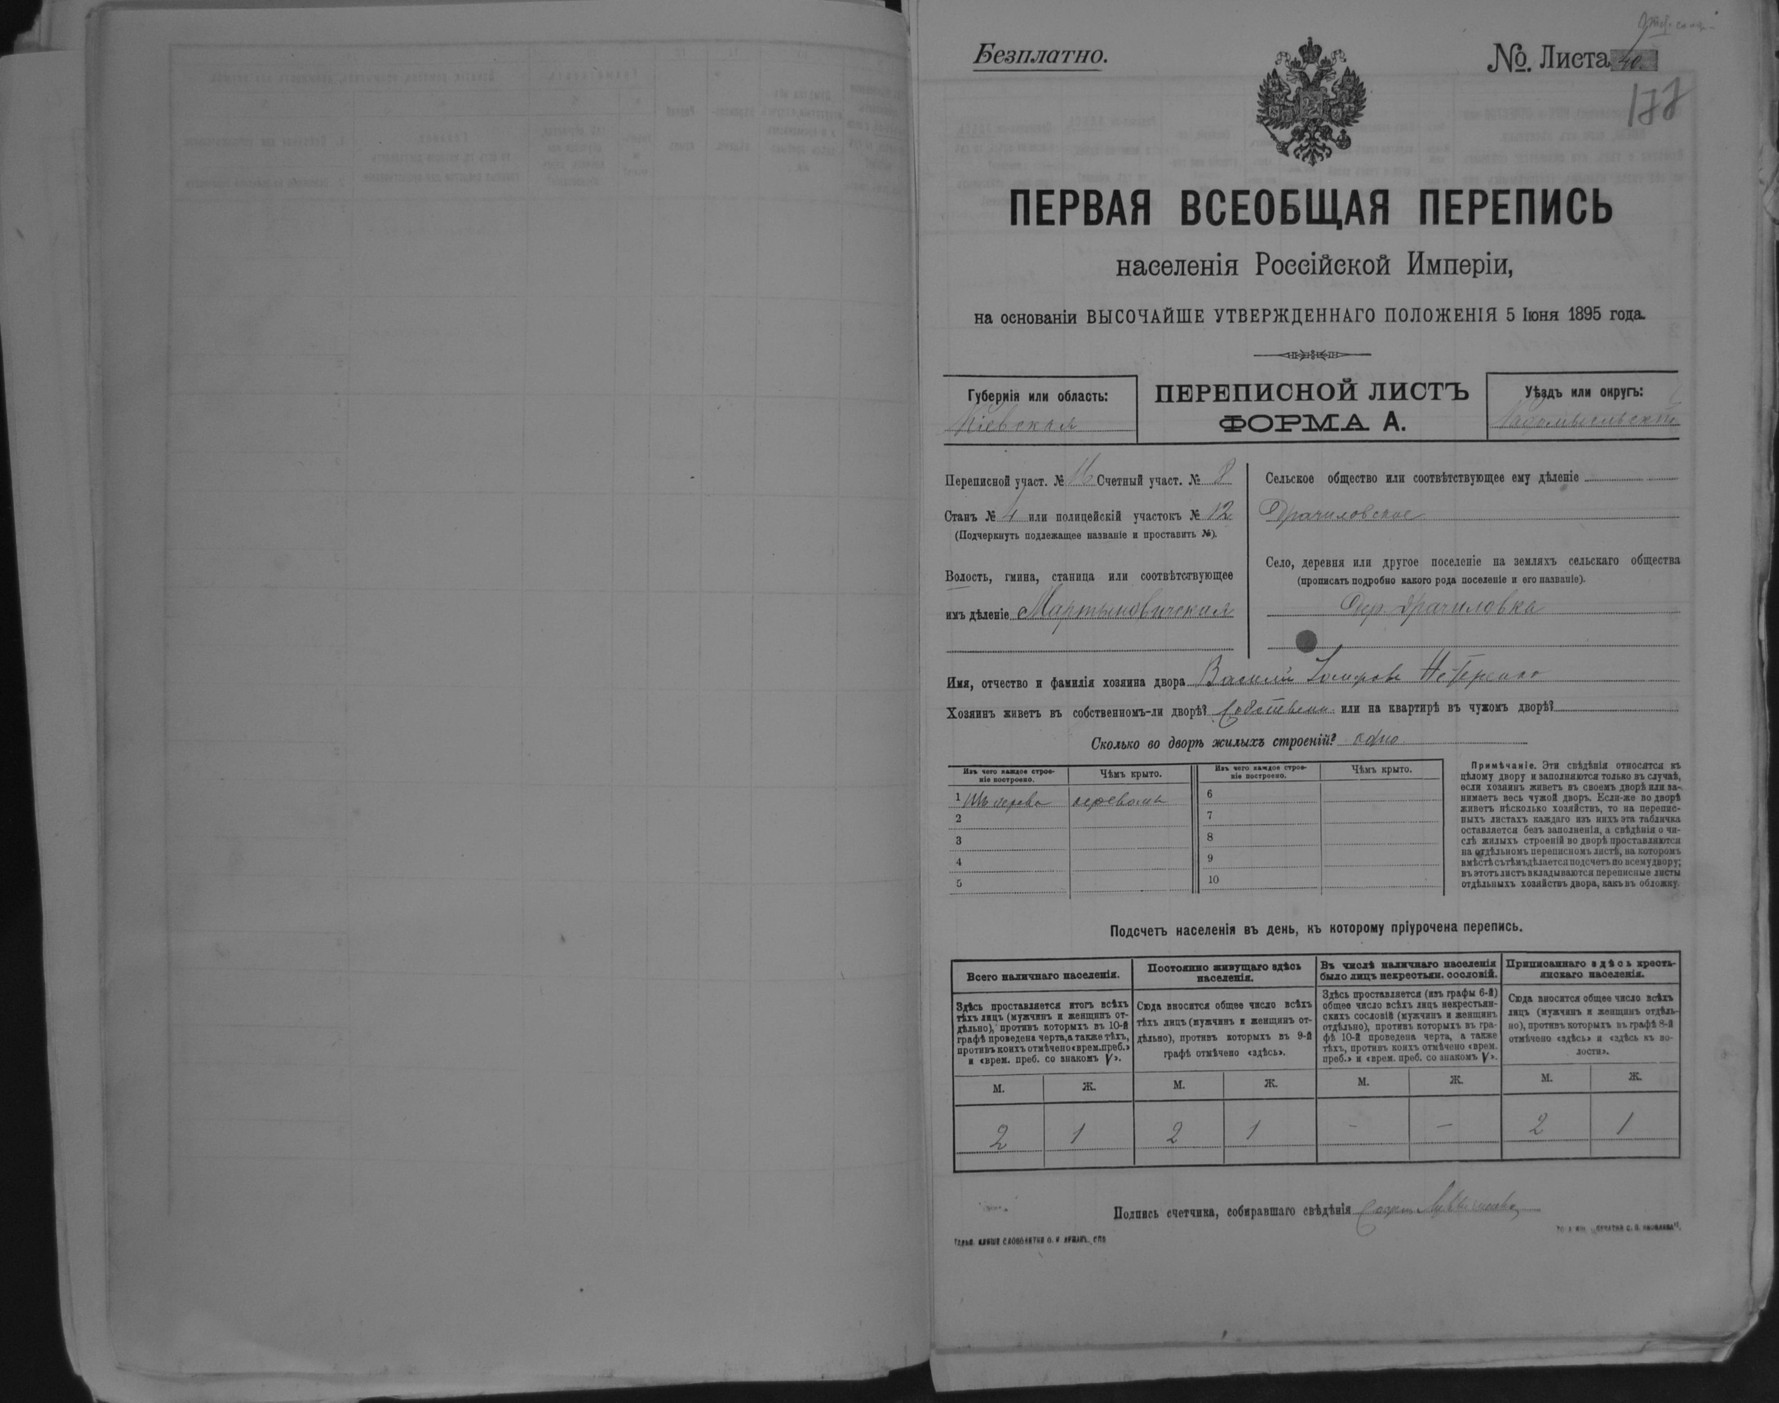 Безплатно.
No. Листа 40.
177
ПЕРВАЯ ВСЕОБЩАЯ ПЕРЕПИСЬ
населенія Россійской Имперіи,
на основаніи ВЫСОЧАЙШЕ УТВЕРЖДЕННАГО ПОЛОЖЕНІЯ 5 Іюня 1895 года.
Губернія или область:
Кіевская
ПЕРЕПИСНОЙ ЛИСТЪ
ФОРМА А.
Уѣздъ или округъ:
Радомысльскій
Переписной участ. № 16 Счетный участ. № 8
Станъ № 4 или полицейскій участокъ № 12
(Подчеркнуть подлежащее названіе и проставить №).
Волость, гмина, станица или соотвѣтствующее
имъ дѣленіе Мартыновичская
Сельское общество или соотвѣтствующее ему дѣленіе
Драчиловское
Село, деревня или другое поселеніе на земляхъ сельскаго общества
(прописать подробно какого рода поселеніе и его названіе).
Дер. Драчиловка
Имя, отчество и фамилія хозяина двора Василій Нестеренко
Хозяинъ живетъ въ собственномъ-ли дворѣ? Собствен. или на квартирѣ въ чужомъ дворѣ?
Сколько во дворѣ жилыхъ строеній? одно
Изъ чего каждое строе-
ніе построено.
Чѣмъ крыто.
Изъ чего каждое строе-
ніе построено.
Чѣмъ крыто.
1 Изъ дерева деревомъ
2
3
4
5
6
7
8
9
10
Примѣчаніе. Эти свѣдѣнія относятся къ
цѣлому двору и заполняются только въ случаѣ,
если хозяинъ живетъ въ своемъ дворѣ или за-
нимаетъ весь чужой дворъ. Если-же во дворѣ
живетъ нѣсколько хозяйствъ, то на перепис-
ныхъ листахъ каждаго изъ нихъ эта табличка
оставляется безъ заполненія, а свѣдѣнія о чи-
слѣ жилыхъ строеній во дворѣ проставляются
на отдѣльномъ переписномъ листѣ, на которомъ
вмѣстѣ съ тѣмъ дѣлается подсчетъ по всему двору;
въ этотъ листъ вкладываются переписные листы
отдѣльныхъ хозяйствъ двора, какъ въ обложку.
Подсчетъ населенія въ день, къ которому пріурочена перепись.
Всего наличнаго населенія.
Здѣсь проставляется итогъ всѣхъ
тѣхъ лицъ (мужчинъ и женщинъ от-
дѣльно), противъ которыхъ въ 10-й
графѣ проведена черта, а также тѣхъ,
противъ коихъ отмѣчено «врем. преб.»
и «врем. преб. со знакомъ V».
Постоянно живущаго здѣсь
населенія.
Сюда вносится общее число всѣхъ
тѣхъ лицъ (мужчинъ и женщинъ от-
дѣльно), противъ которыхъ въ 9-й
графѣ отмѣчено «здѣсь».
Въ числѣ наличнаго населенія
было лицъ некрестьян. сословій.
Здѣсь проставляется (изъ графы 6-й)
общее число всѣхъ лицъ некрестьян-
скихъ сословій (мужчинъ и женщинъ
отдѣльно), противъ которыхъ въ гра-
фѣ 10-й проведена черта, а также
тѣхъ, противъ коихъ отмѣчено «врем.
преб.» и «врем. преб. со знакомъ V».
Приписаннаго здѣсь кресть-
янскаго населенія.
Сюда вносится общее число всѣхъ
лицъ (мужчинъ и женщинъ отдѣль-
но), противъ которыхъ въ графѣ 8-й
отмѣчено «здѣсь» и «здѣсь въ во-
лости».
М. Ж. М. Ж. М. Ж. М. Ж.
2 1 2 1 - - 2 1
Подпись счетчика, собиравшаго свѣдѣнія